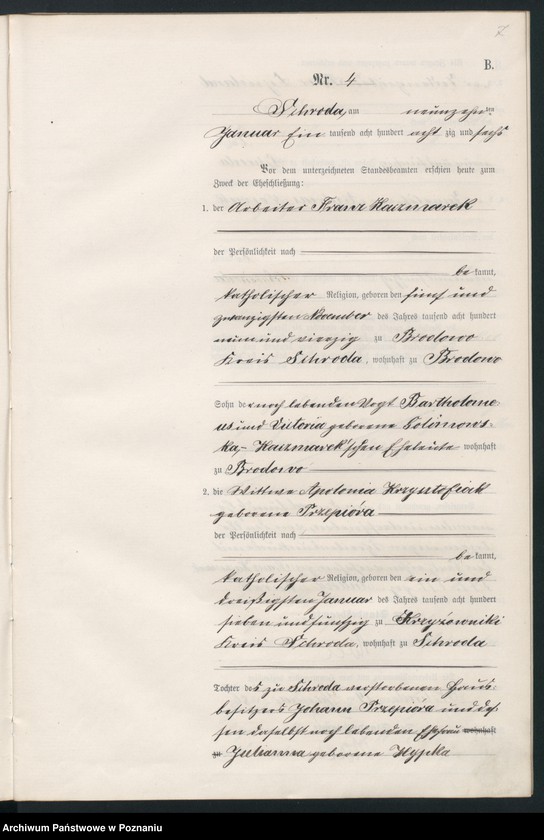 7
B.
Nr. 4
Schroda, am neunzehnten
Januar Ein tausend acht hundert achtzig und sechs
Vor dem unterzeichneten Standesbeamten erschien heute zum
Zweck der Eheschließung:
1. der Arbeiter Franz Kaczmarek
der Persönlichkeit nach
bekannt,
katholischer Religion, geboren den fünf und
zwanzigsten November des Jahres tausend acht hundert
neun und vierzig zu Brodowo
Kreis Schroda, wohnhaft zu Brodowo
Sohn der noch lebenden Vogt Bartholomeus
und Victoria geborene
Kaczmarek'schen Eheleute wohnhaft
zu Brodowo
2. die Wittwe Apolonia Krzysztofiak
geborene Przepióra
der Persönlichkeit nach
bekannt,
katholischer Religion, geboren den ein und
dreißigsten Januar des Jahres tausend acht hundert
sieben und fünfzig zu Krzyżowniki
Kreis Schroda, wohnhaft zu Schroda
Tochter des zu Schroda verstorbenen Haus-
besitzers Johann Przepióra und des-
sen daselbst noch lebenden Ehefrau wohnhaft
zu Julianna geborene Hypka
Archiwum Państwowe w Poznaniu
szukajwarchiwach.gov.pl